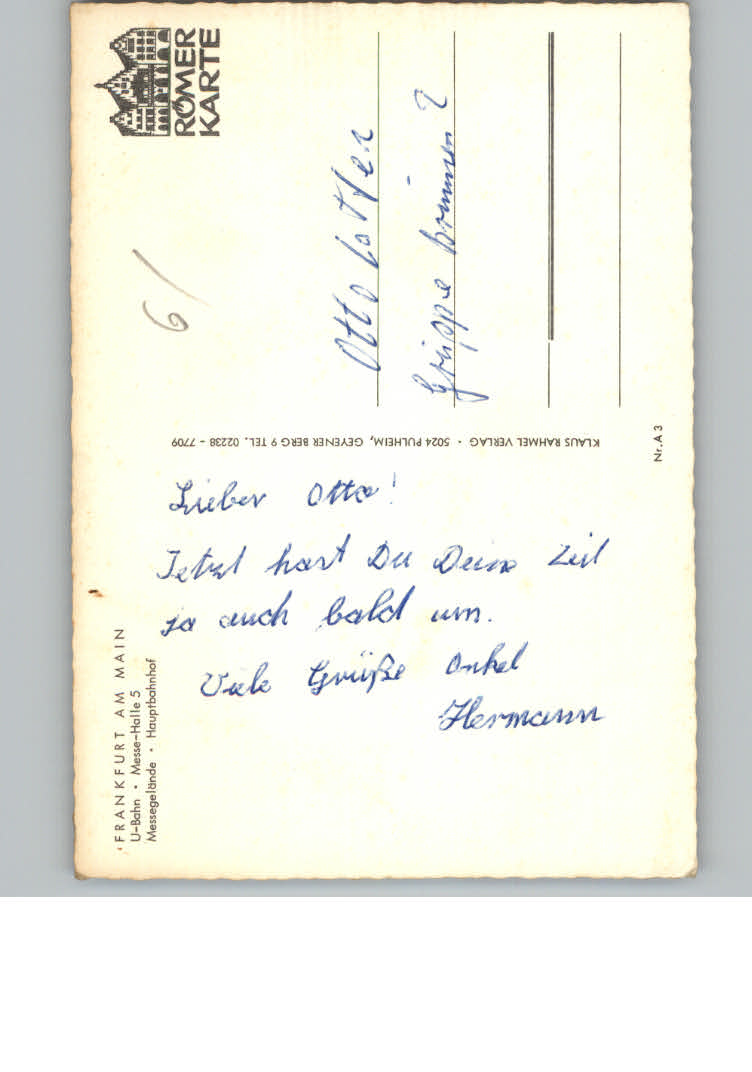 RÖMER
KARTE
Otto
Gruppe
6/
KLAUS RAHMEL VERLAG · 5024 PULHEIM, GEYENER BERG 9 TEL. 02238 - 7709
Nr. A 3
Lieber Otto!
Jetzt hast Du Deine Zeit
ja auch bald um.
Viele Grüße Onkel
Hermann
FRANKFURT AM MAIN
U-Bahn · Messe-Halle 5
Messegelände · Hauptbahnhof